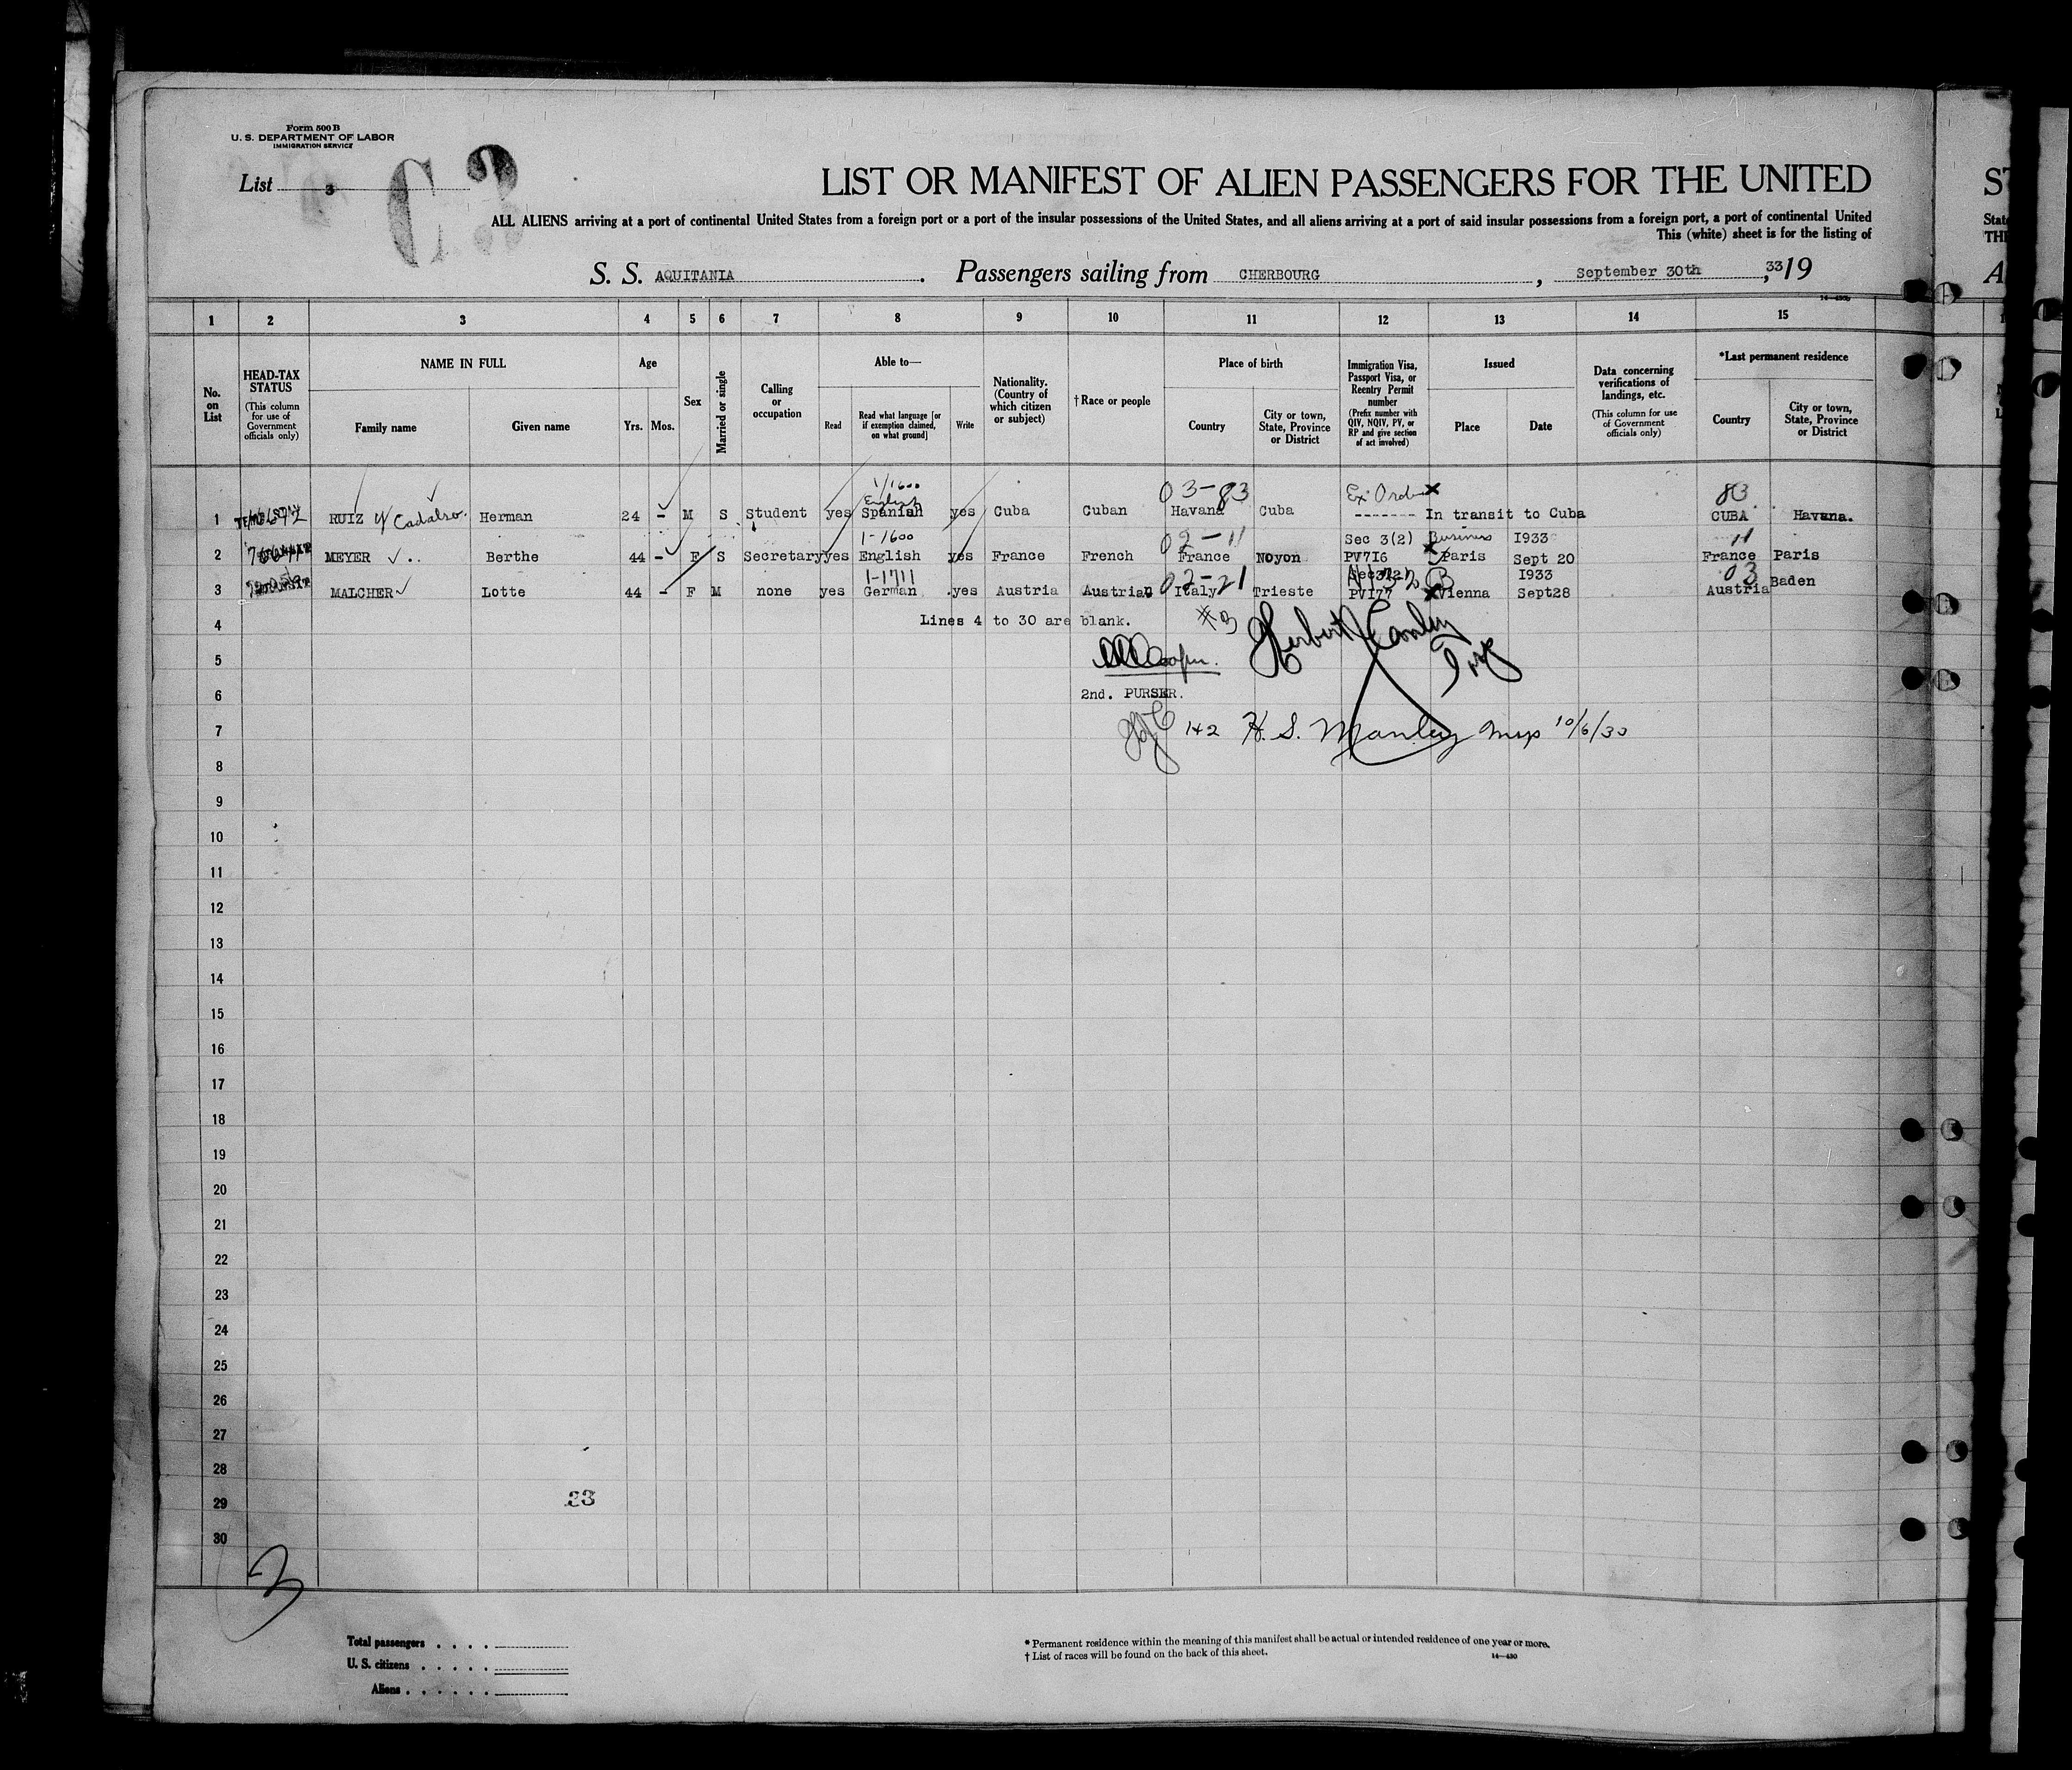 Form 500 B
U. S. DEPARTMENT OF LABOR
IMMIGRATION SERVICE
List 3
C 3
LIST OR MANIFEST OF ALIEN PASSENGERS FOR THE UNITED
ALL ALIENS arriving at a port of continental United States from a foreign port or a port of the insular possessions of the United States, and all aliens arriving at a port of said insular possessions from a foreign port, a port of continental United
This (white) sheet is for the listing of
S. S. AQUITANIA. Passengers sailing from CHERBOURG, September 30th, 3319
14—430b
1 2 3 4 5 6 7 8 9 10 11 12 13 14 15
No. on List
HEAD-TAX STATUS (This column for use of Government officials only)
NAME IN FULL
Family name Given name
Age
Yrs. Mos.
Sex
Married or single
Calling or occupation
Able to—
Read Read what language [or if exemption claimed, on what ground] Write
Nationality. (Country of which citizen or subject)
†Race or people
Place of birth
Country City or town, State, Province or District
Immigration Visa, Passport Visa, or Reentry Permit number (Prefix number with QIV, NQIV, PV, or RP and give section of act involved)
Issued
Place Date
Data concerning verifications of landings, etc. (This column for use of Government officials only)
*Last permanent residence
Country City or town, State, Province or District
1/1600 03-83 83
English Ex Ord x
1 RUIZ y Cadalso. Herman 24 - M S Student yes Spanish yes Cuba Cuban Havana Cuba ------- In transit to Cuba CUBA Havana.
1-1600 02-11 Sec 3(2) Business I933 11
2 MEYER Berthe 44 - F S Secretary yes English yes France French France Noyon PV7I6 x Paris Sept 20 France Paris
1-1711 02-21 Sec3(2) B I933 03
3 MALCHER Lotte 44 - F M none yes German yes Austria Austrian Italy Trieste PVI77 x Vienna Sept28 Austria Baden
4 Lines 4 to 30 are blank. #3
5
6 2nd. PURSER.
7 1+2 H. S. Manley 10/6/33
8
9
10
11
12
13
14
15
16
17
18
19
20
21
22
23
24
25
26
27
28
29 33
30
3
Total passengers . . . .
U. S. citizens . . . . .
Aliens . . . . . .
* Permanent residence within the meaning of this manifest shall be actual or intended residence of one year or more.
† List of races will be found on the back of this sheet. 14—430